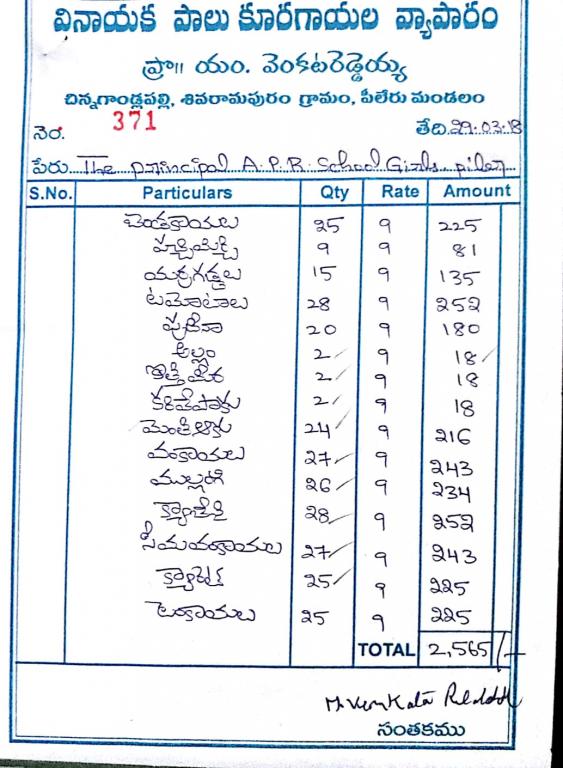 వినాయక పాలు కూరగాయల వ్యాపారం
ప్రొ|| యం. వెంకటరెడ్డెయ్య
చిన్నగాండ్లపల్లి, శివరామపురం గ్రామం, పీలేరు మండలం
నెం. 371 తేది.29.03.18
పేరు. The principal A.P.R. School Girls piler
S.No. Particulars Qty Rate Amount
బెండకాయలు 25 9 225
పచ్చిమిర్చి 9 9 81
యర్రగడ్డలు 15 9 135
టమోటాలు 28 9 252
పుదీనా 20 9 180
అల్లం 2 9 18
కొత్తిమీర 2 9 18
కరివేపాకు 2 9 18
మెంతిఆకు 24 9 216
వంకాయలు 27 9 243
ముల్లంగి 26 9 234
28 9 252
సీమవంకాయలు 27 9 243
క్యారెట్ 25 9 225
25 9 225
TOTAL 2,565/-
M. Venkata Reddy
సంతకము